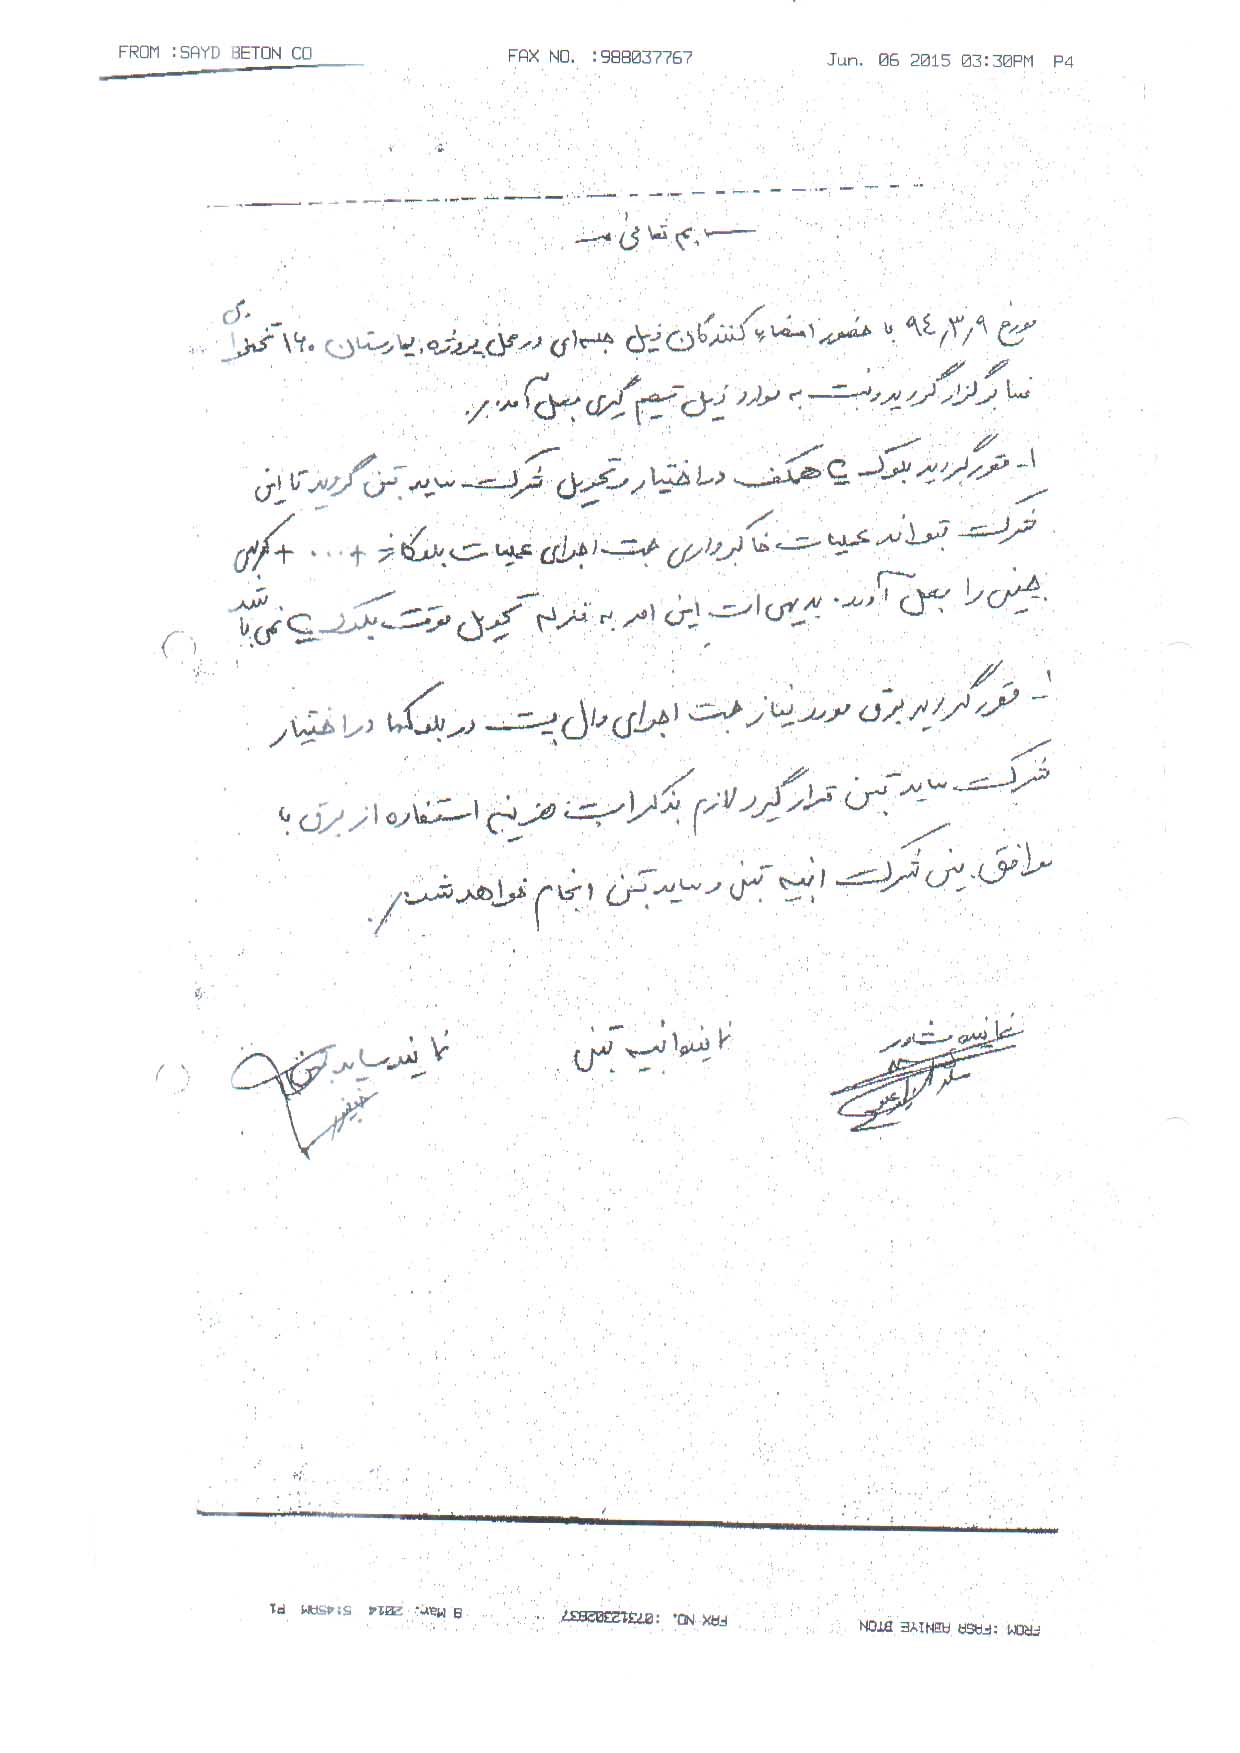 FROM :SAYD BETON CO FAX NO. :988037767 Jun. 06 2015 03:30PM P4
بسمه تعالی
مورخ ۹۴,۳,۹ با حضور امضاء کنندگان ذیل جلسه‌ای در محل پروژه بیمارستان ۱۶۰ تختخوابی
فسا برگزار گردید و نسبت به موارد ذیل تصمیم گیری بعمل آمد.
۱- مقرر گردید بلوک همکف در اختیار و تحویل شرکت ساید بتن گردید تا این
شرکت بتواند عملیات خاکبرداری جهت اجرای عملیات بلوکاژ + ... + کرسی
چینی را بعمل آورد. بدیهی است این امر به منزله تحویل موقت بلوک نمی باشد
- مقرر گردید برق مورد نیاز جهت اجرای وال پست در بلوکها در اختیار
شرکت ساید بتن قرار گیرد لازم بذکر است هزینه استفاده از برق با
توافق بین شرکت ابنیه بتن و ساید بتن انجام خواهد شد.
نماینده مشاور نماینده ابنیه بتن نماینده ساید بتن
FROM :FASA ABNIYE BTON FAX NO. :07312302837 8 Mar. 2014 5:45AM P1